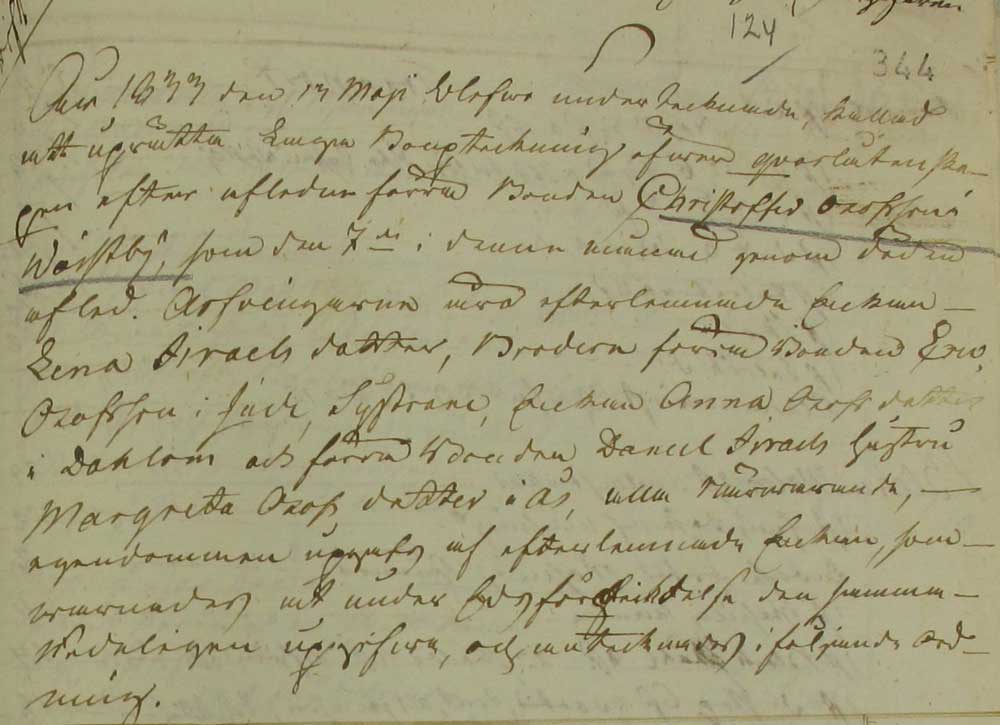 124
344
Åhr 1833 den 13 Maji blefwo undertecknade, kallad
att uprätta Laga Bouptekning öfwer qvarlåtenska-
pen efter aflidne förra Bonden Christoffer Olofssons
Wästby, som den 7de i denne månad genom döden
afled. Arfvingarne äro efterlemnade Enkan –
Lena Israels dotter, Brodren förra Bonden Eric
Olofsson i Jude, Systrarne, Enkan Anna Olofs dotter
i Dahlom och förra Bonden Daniel Israels Hustru
Margreta Olofs dotter i Ås, alla närwarande, –
egendommen upgafs af efterlemnade Enkan, som –
warnades att under Edsförplicktelse den samma –
Redeligen upgifwa, och antecknades i följande ord-
ning.